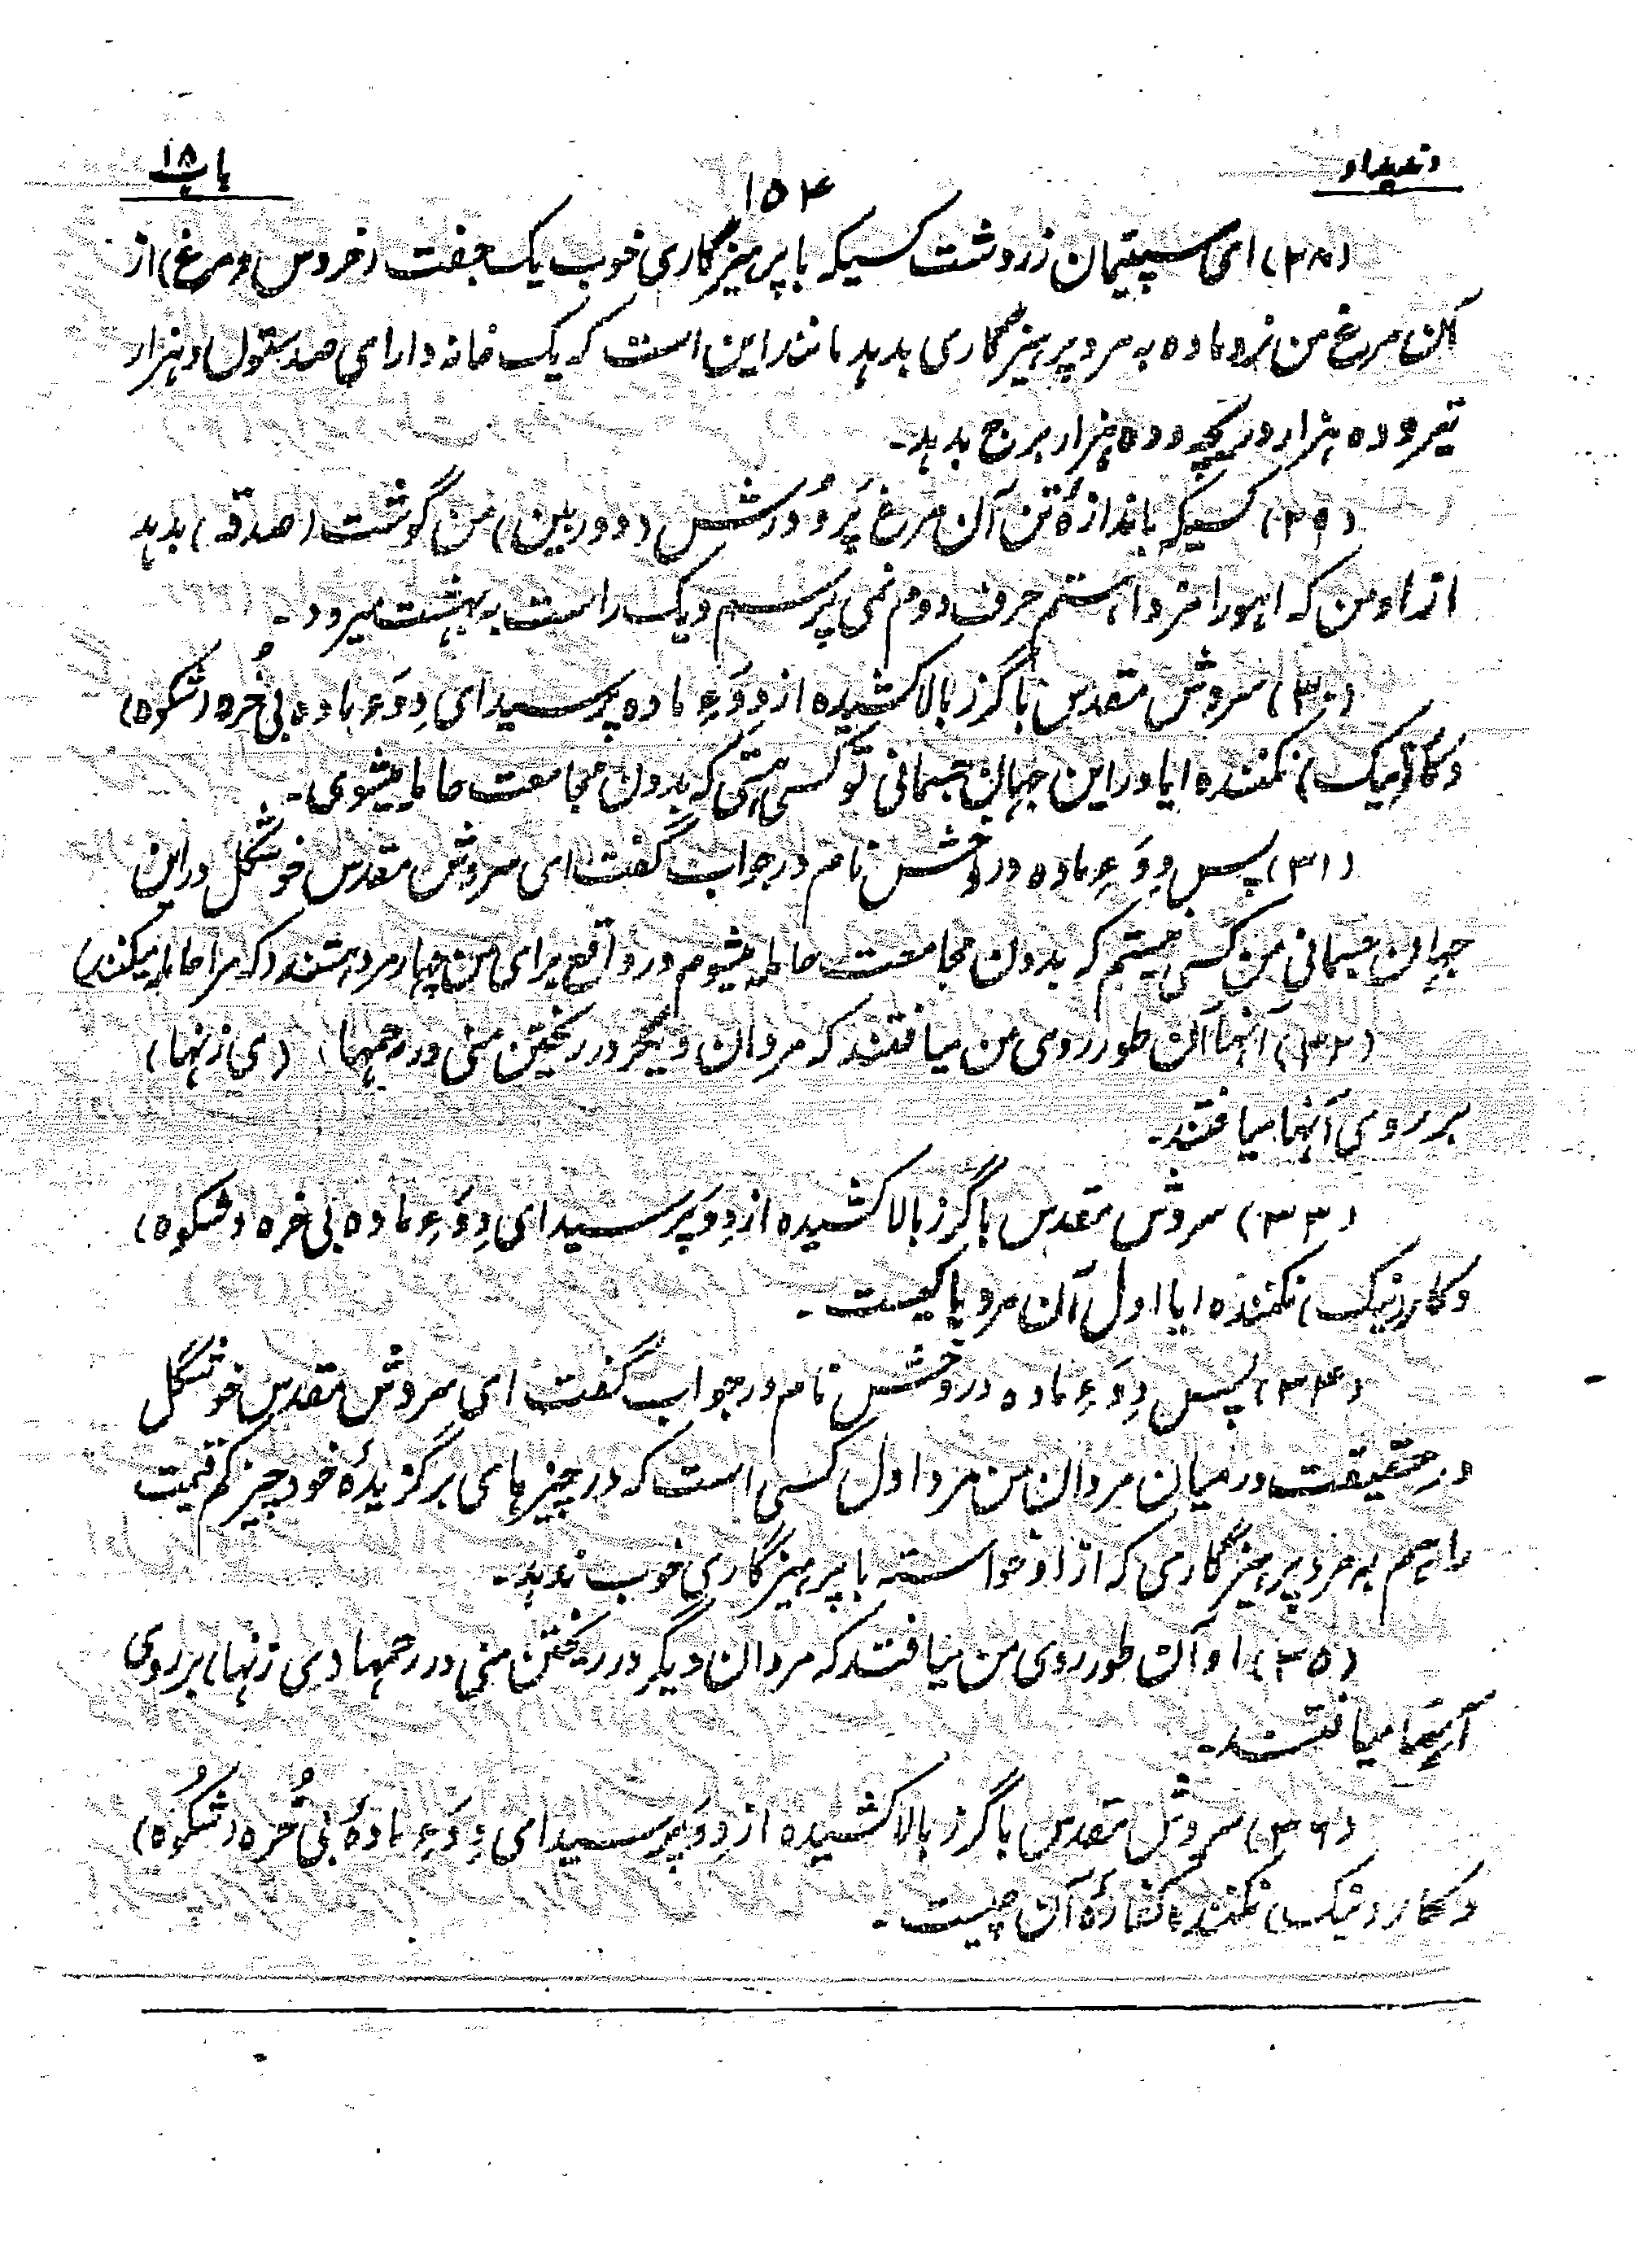 وندیداد ۱۵۴ باب ۱۸
(۲۸) ای سپیتمان زردوشت کسیکه با پرهیزگاری خوب یک جفت (خروس و مرغ) از
آن مرغ من نر و ماده به مرد پرهیزگاری بدهد مانند این است که یک خانه دارای صد ستون و هزار
تیر و ده هزار دریچه و ده هزار برج بدهد۔
(۲۹) کسیکه باندازۀ تن آن مرغ پَرُودَرش (دوربین) من گوشت (صدقه) بدهد
از او من که اهورا مزدا هستم حرف دوم نمی پرسم و یک راست به بهشت میرود۔
(۳۰) سروش مقدس با گرز بالا کشیده از دِوَءِ ماده پرسید ای دِوَءِ ماده بی خُره (شکوه)
و کار (نیک) نکننده ایا در این جهان جسمانی تو کسی هستی که بدون مجامعت حامله میشوی۔
(۳۱) پس دِوَءِ ماده دروخش نام در جواب گفت ای سروش مقدس خوشگل در این
جهان جسمانی من کسی نیستم که بدون مجامعت حامله میشوم در واقع برای من چهار مرد هستند (که مرا حامله میکنند)
(۳۲) آنها آن طور روی من میافتند که مردان دیگر در ریختن منی در رحمها (ی زنها)
بر روی آنها میافتند۔
(۳۳) سروش مقدس با گرز بالا کشیده از دِوَ پرسید ای دِوَءِ ماده بی خره (شکوه)
و کار (نیک) نکننده ایا اول آن مردها کیست۔
(۳۴) پس دِوَءِ ماده دروخش نام در جواب گفت ای سروش مقدس خوشگل
در حقیقت در میان مردان من مرد اول کسی است که در چیزهای برگزیدۀ خود چیز کم قیمت
را هم به مرد پرهیزگاری که از او خواسته با پرهیزگاری خوب ندهد۔
(۳۵) او آن طور روی من میافتد که مردان دیگر در ریختن منی در رحمها (ی زنها) بر روی
آنها میافتند۔
(۳۶) سروش مقدس با گرز بالا کشیده از دِوَ پرسید ای دِوَءِ مادۀ بی خُره (شکُوه)
و کار (نیک) نکننده کفارۀ آن چیست۔